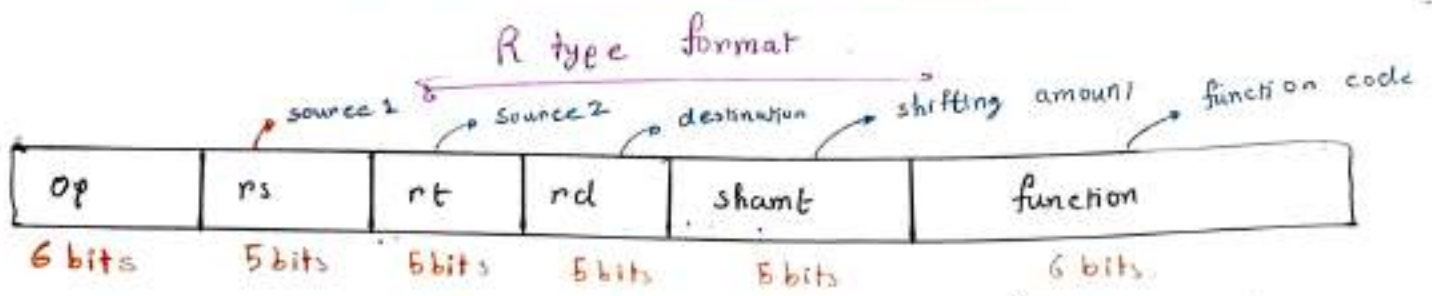 R type format
source 1 source 2 destination shifting amount function code
op rs rt rd shamt function
6 bits 5 bits 5 bits 5 bits 5 bits 6 bits